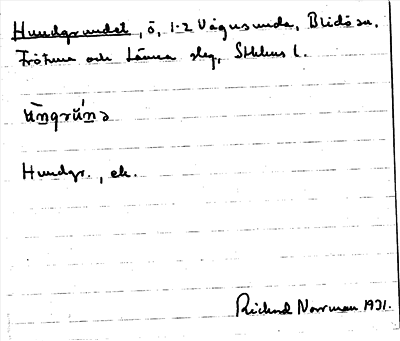 Hundgrundet, ö, 1-2 Vågusunda, Blidö sn,
Frötuna och Länna slg, Sthlms l.
ùngrúnd
Hundgr., ek.
Richard Norrman 1931.